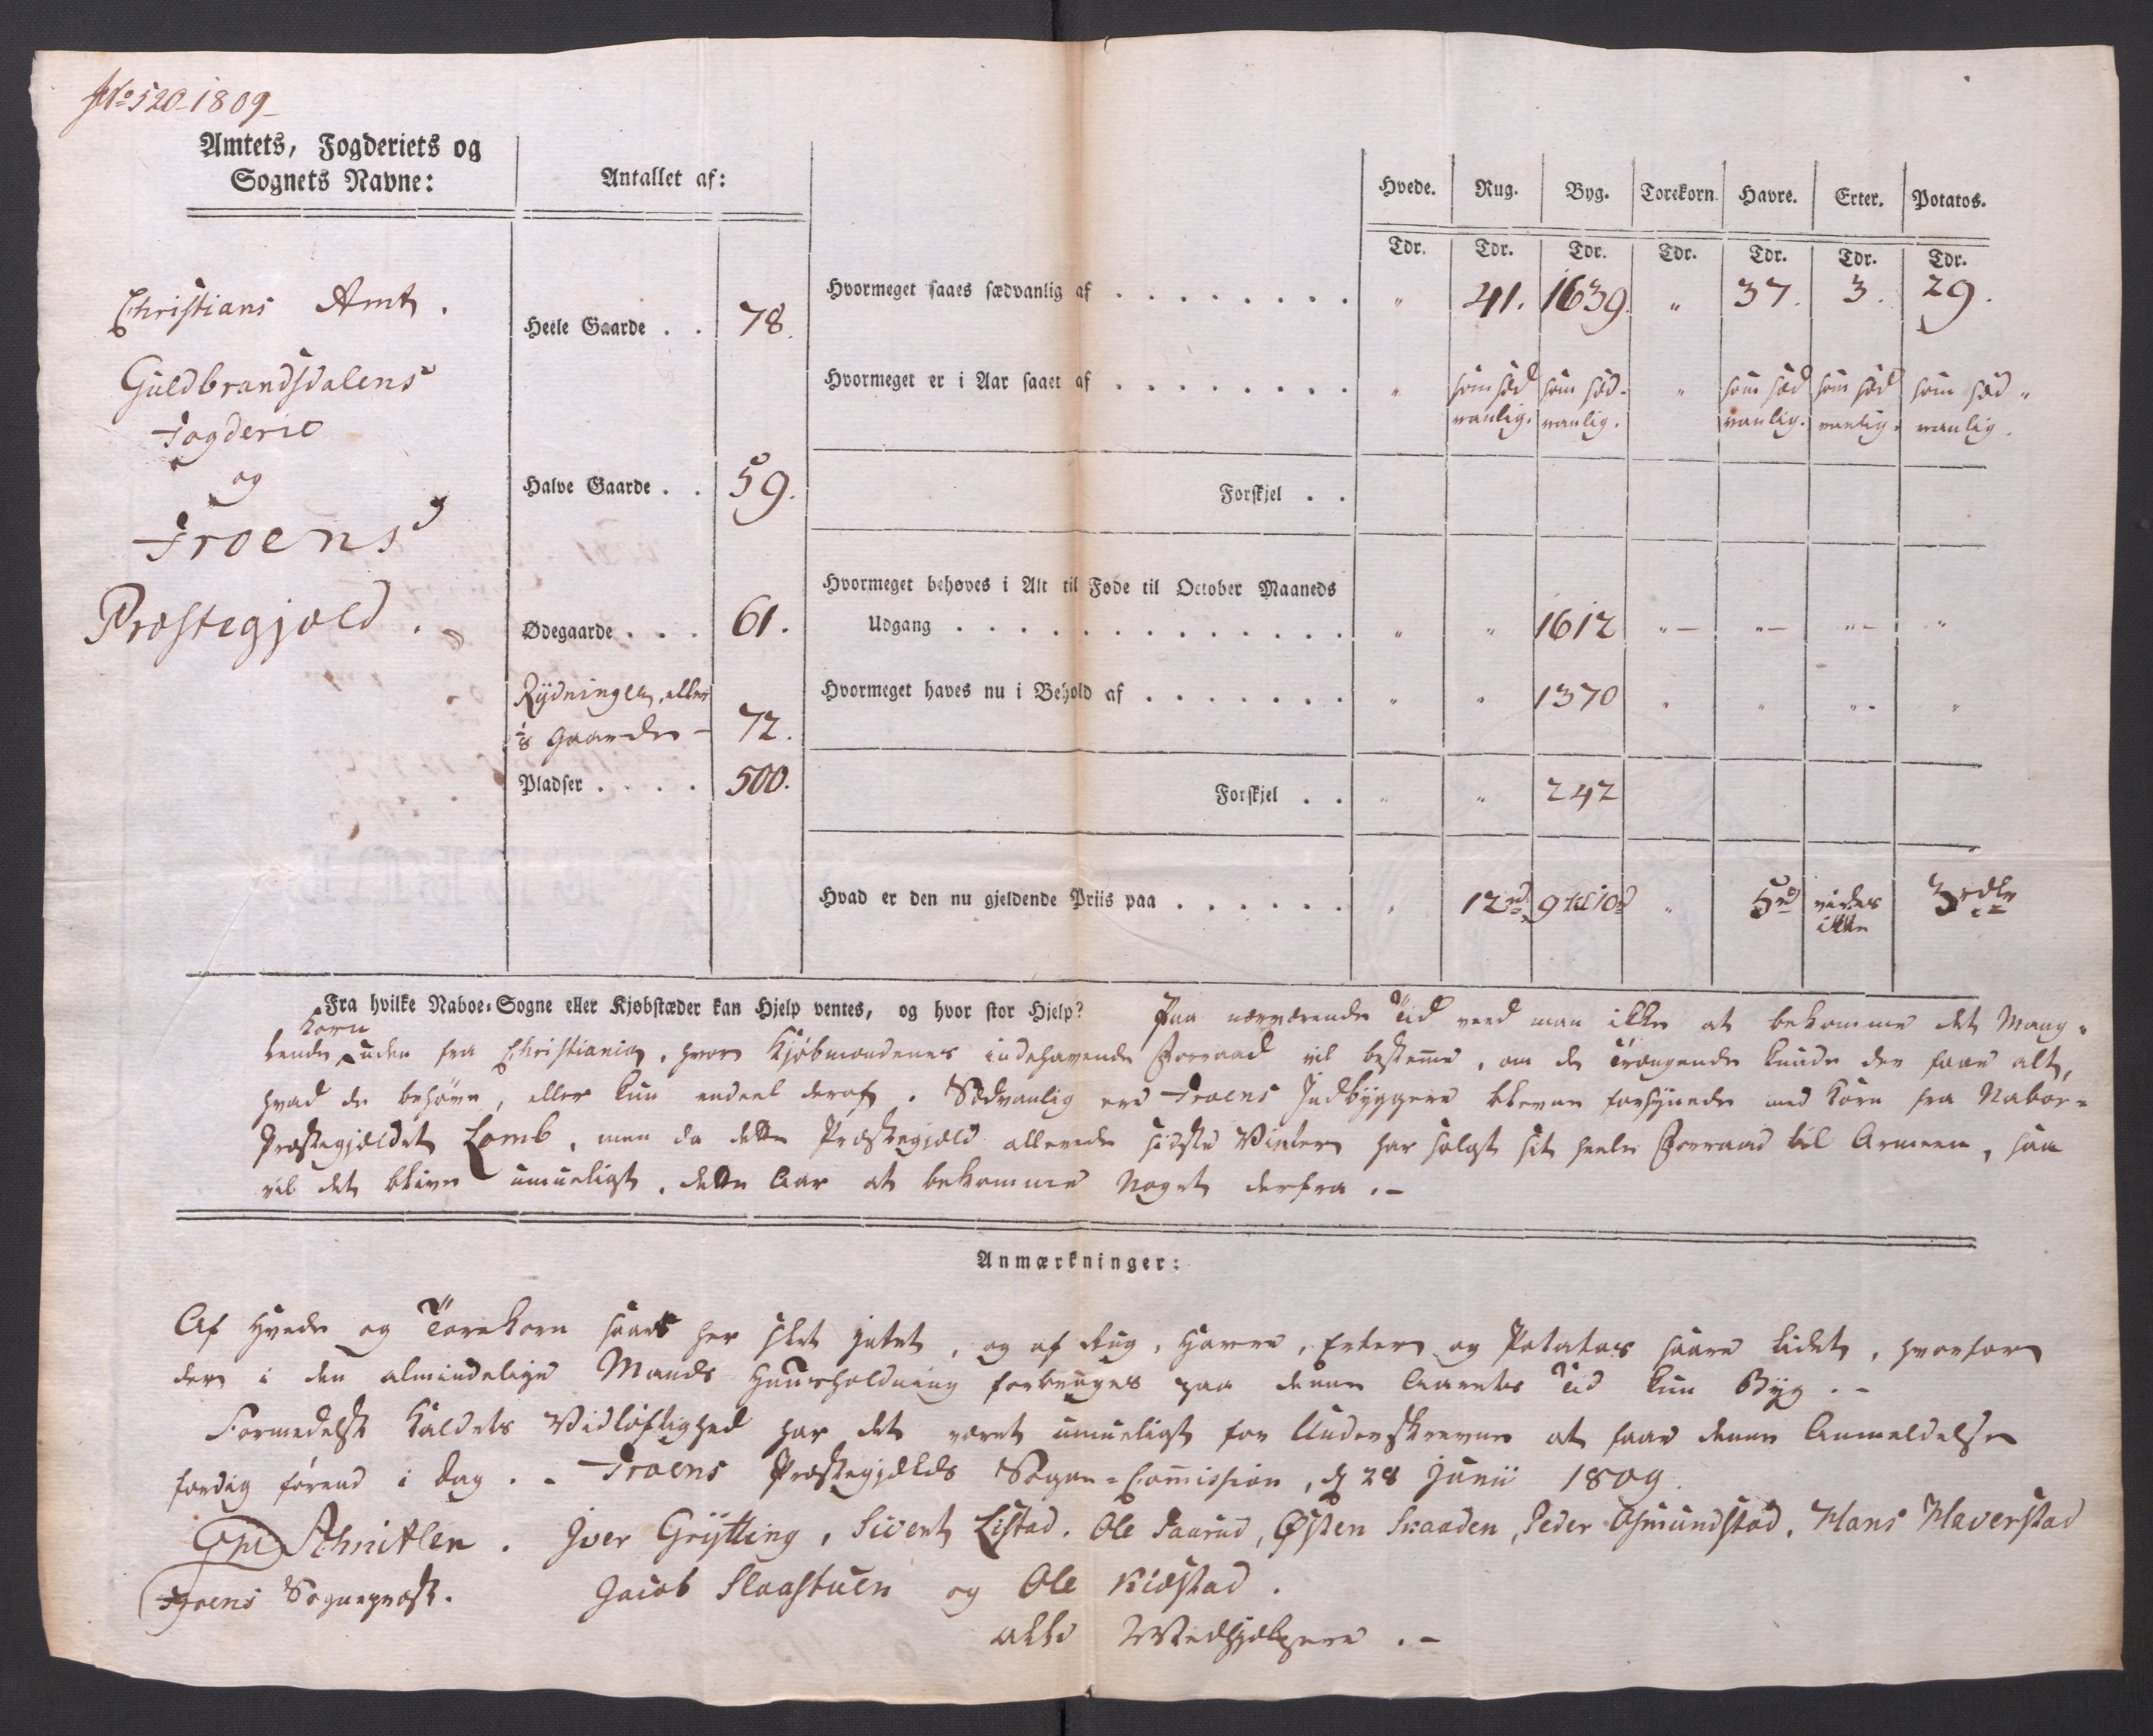 No 520-1809
Amtets, Fogderiets og
Sognets Navne:
Antallet af:
Hvede. Rug. Byg. Torekorn. Havre. Erter. Potatos.
Tdr. Tdr. Tdr. Tdr. Tdr. Tdr. Tdr.
Christians Amt.
Guldbrandsdalens
Fogderie
og
Froens
Præstegjæld.
Heele Gaarde . . 78.
Halve Gaarde . . 59.
Ødegaarde . . . 61.
Rydninger, eller
1/8 Gaarde - 72.
Pladser . . . . 500.
Hvormeget saaes sædvanlig af . . . . . . . . " 41. 1639. " 37. 3. 29.
Hvormeget er i Aar saaet af . . . . . . . . " som sæd som sæd- " som sæd som sæd som sæd-
vanlig. vanlig. vanlig. vanlig. vanlig.
Forskjel . .
Hvormeget behøves i Alt til Føde til October Maaneds
Udgang . . . . . . . . . . . . . " " 1612 " - " - " - "
Hvormeget haves nu i Behold af . . . . . . . " " 1370 " " " - "
Forskjel . . " " 242
Hvad er den nu gjeldende Priis paa . . . . . . " 12 rd 9 til 10 rd " 5 rd vides 3 rdlr
ikke
Fra hvilke Naboe-Sogne eller Kjøbstæder kan Hjelp ventes, og hvor stor Hjelp? Paa nærværende Tid veed man ikke at bekomme det Mang-
Korn
lende uden fra Christiania, hvor Kjøbmændenes indehavende Forraad vil bestemme, om de Trængende kunde der faae alt,
hvad de behøve, eller kun endeel deraf. Sædvanlig ere Froens Indbyggere blevne forsynede med Korn fra Naboe-
Præstegjældet Lomb, men da dette Præstegjæld allerede sidste Vinter har solgt sit heele Forraad til Armeen, saa
vil det blive umueligt, dette Aar at bekomme noget derfra. -
Anmærkninger:
Af Hvede og Torekorn saaes her slet intet, og af Rug, Havre, Erter og Potatos saare lidet, hvorfor
der i den almindelige Mands Huusholdning forbruges paa denne Aarets Tid kun Byg. -
Formedelst Kaldets Vidløftighed har det været umueligt for Underskrevne at faae denne Anmeldelse
færdig førend i Dag. - Froens Præstegjælds Sogne-Commission, d 28 Junii 1809.
Schnitlen. Iver Grytting, Sivert Listad, Ole Faurud, Østen Skaaden, Peder Asmundstad, Hans Haverstad
Froens Sognepræst. Jacob Slaastuen og Ole Kiøstad.
alle Medhjelpere. -